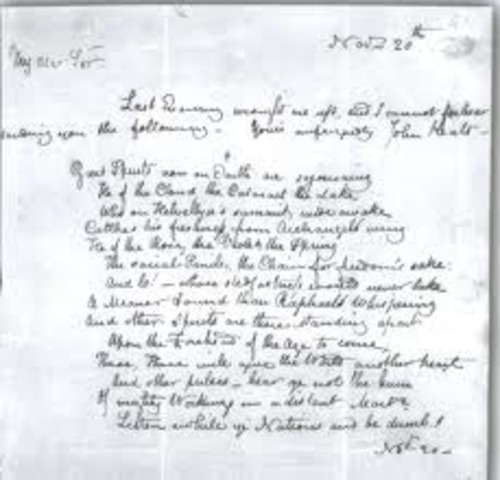 Novr 20th
My dear Sir
Last Evening wrought me up, and I cannot forbear
sending you the following. Yours unfeignedly John Keats
Great Spirits now on Earth are sojourning
He of the Cloud, the Cataract the Lake
Who on Helvellyn's summit wide awake
Catches his freshness from Archangel's wing
He of the Rose, the Violet, the Spring
The social Smile, the Chain for freedom's sake:
And lo! — whose stedfastness would never take
A Meaner Sound than Raphael's Whispering
And other Spirits are there standing apart
Upon the Forehead of the Age to come;
These, These will give the World another heart
And other pulses — hear ye not the hum
Of mighty Workings in a distant Mart?
Listen awhile ye Nations and be dumb.!
Novr 20—